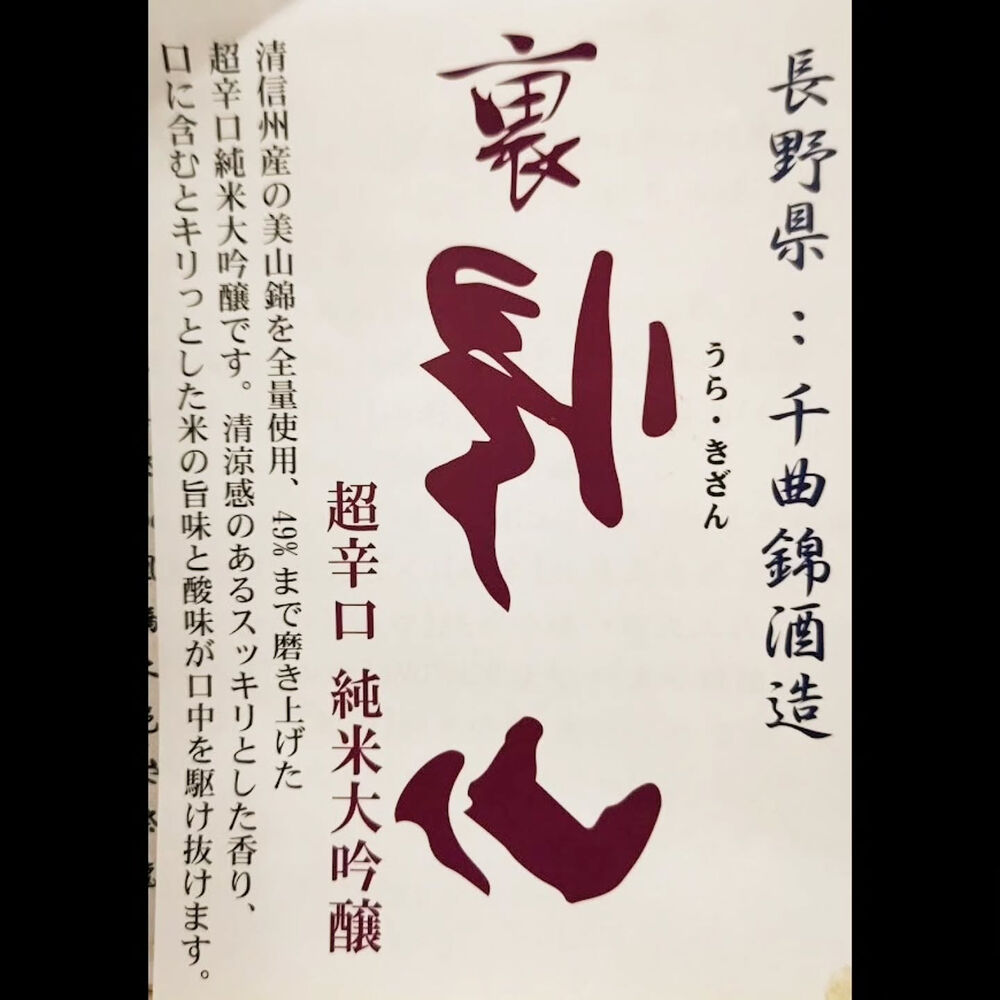 長野県：千曲錦酒造
うら・きざん
裏帰山
超辛口 純米大吟醸
清信州産の美山錦を全量使用、49%まで磨き上げた
超辛口純米大吟醸です。清涼感のあるスッキリとした香り、
口に含むとキリっとした米の旨味と酸味が口中を駆け抜けます。